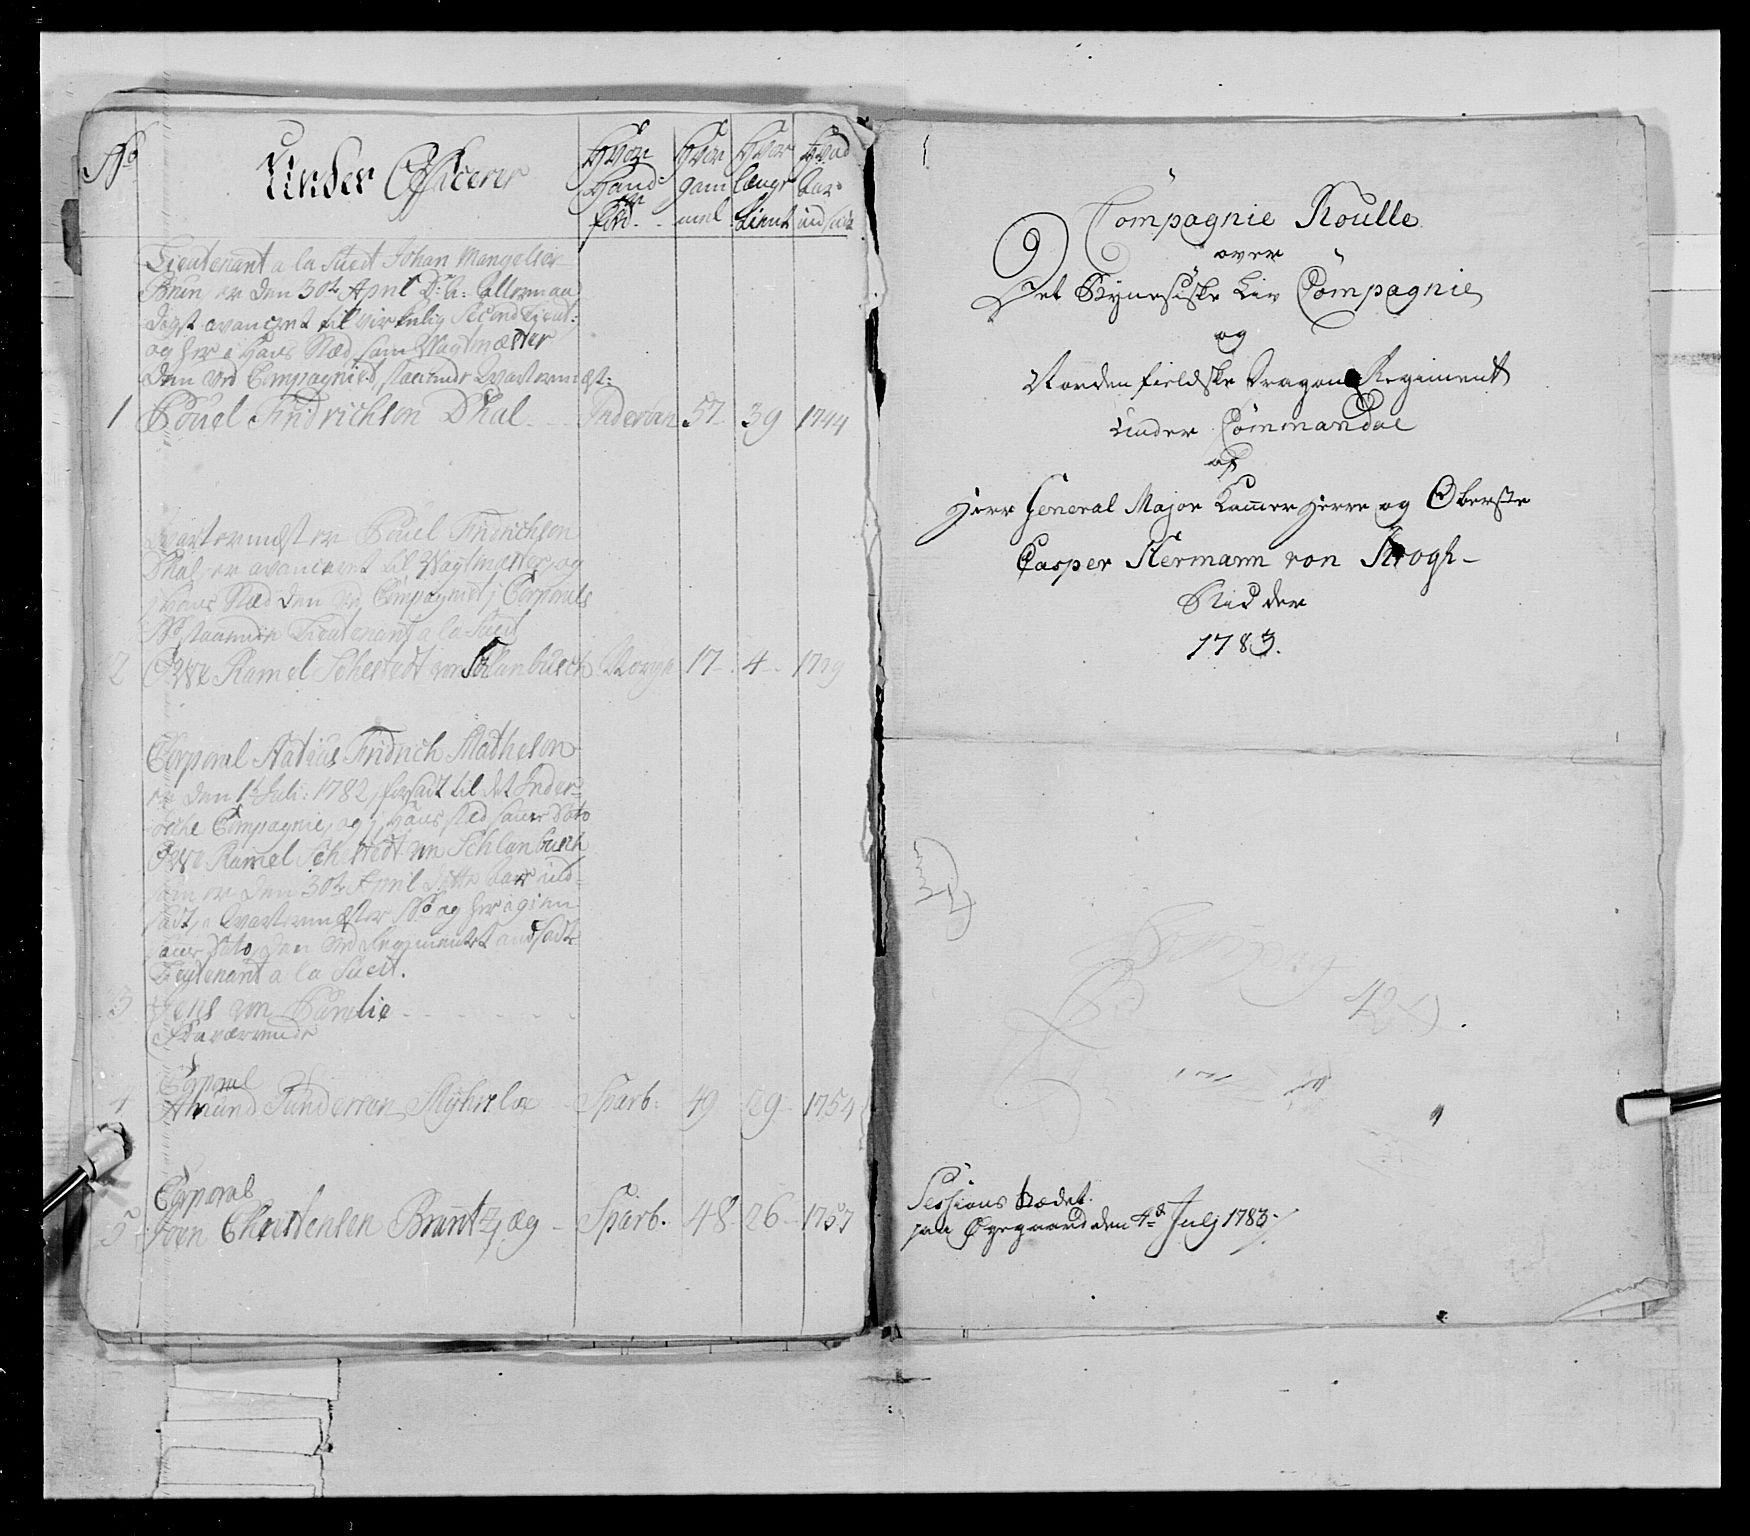 No
Under Officerer
Hvor Hand er fød
Hvor gammel
Hvor længe tient
Hvad Aar indsadt
Lieutenant a la Suet Johan Mangelsen
Brun, er den 30te April D: A: allermaa
dogst avanceret til virkelig Second Lieut:
og her i Hans Stæd som Wagtmæster
den ved Compagniet staaende Qvartermest:
1 Pouel Fridrichsen Dhal Inderöen 57 39 1744
Qvartermester Pouel Fridrichsen
Dhal, er avanceret til Wagtmæster, og
i Hans Stæd den ved Compagniet i Corporals
No staaende Lieutenant a la Suet
2 Ove Ramel Sehestedt von Schlanbusch Norge 17 4 1779
Corporal Matias Fridrich Matheson
er den 1te Juli: 1782, forsadt til det Inder-
öeske Compagnie, og i Hans sted samme Dato
Ove Ramel Sehestedt von Schlanbusch
som er den 30te April dette Aar ind-
sadt, i Qvartermester No og her igien
samme Dato, den ved Regimentet ansadte
Lieutenant a la Suet.
3 Jens von Pamelie
Fraværende
Corporal
4 Amund Gundersen Myhrslo Sparb: 49 29 1754
Corporal
5 Joen Christensen Brantzæg Sparb. 48 26 1757
1
Compagnie Roulle
over
Det Bynesiske Liv Compagnie
og
Nordenfieldske Dragon Regiment
under Commandoe
af
Herr General Major Kammerherre og Oberste
Casper Hermann von Krogh
Ridder
1783.
Sessions Stædet
paa Øyegaard den 4de Julj 1783